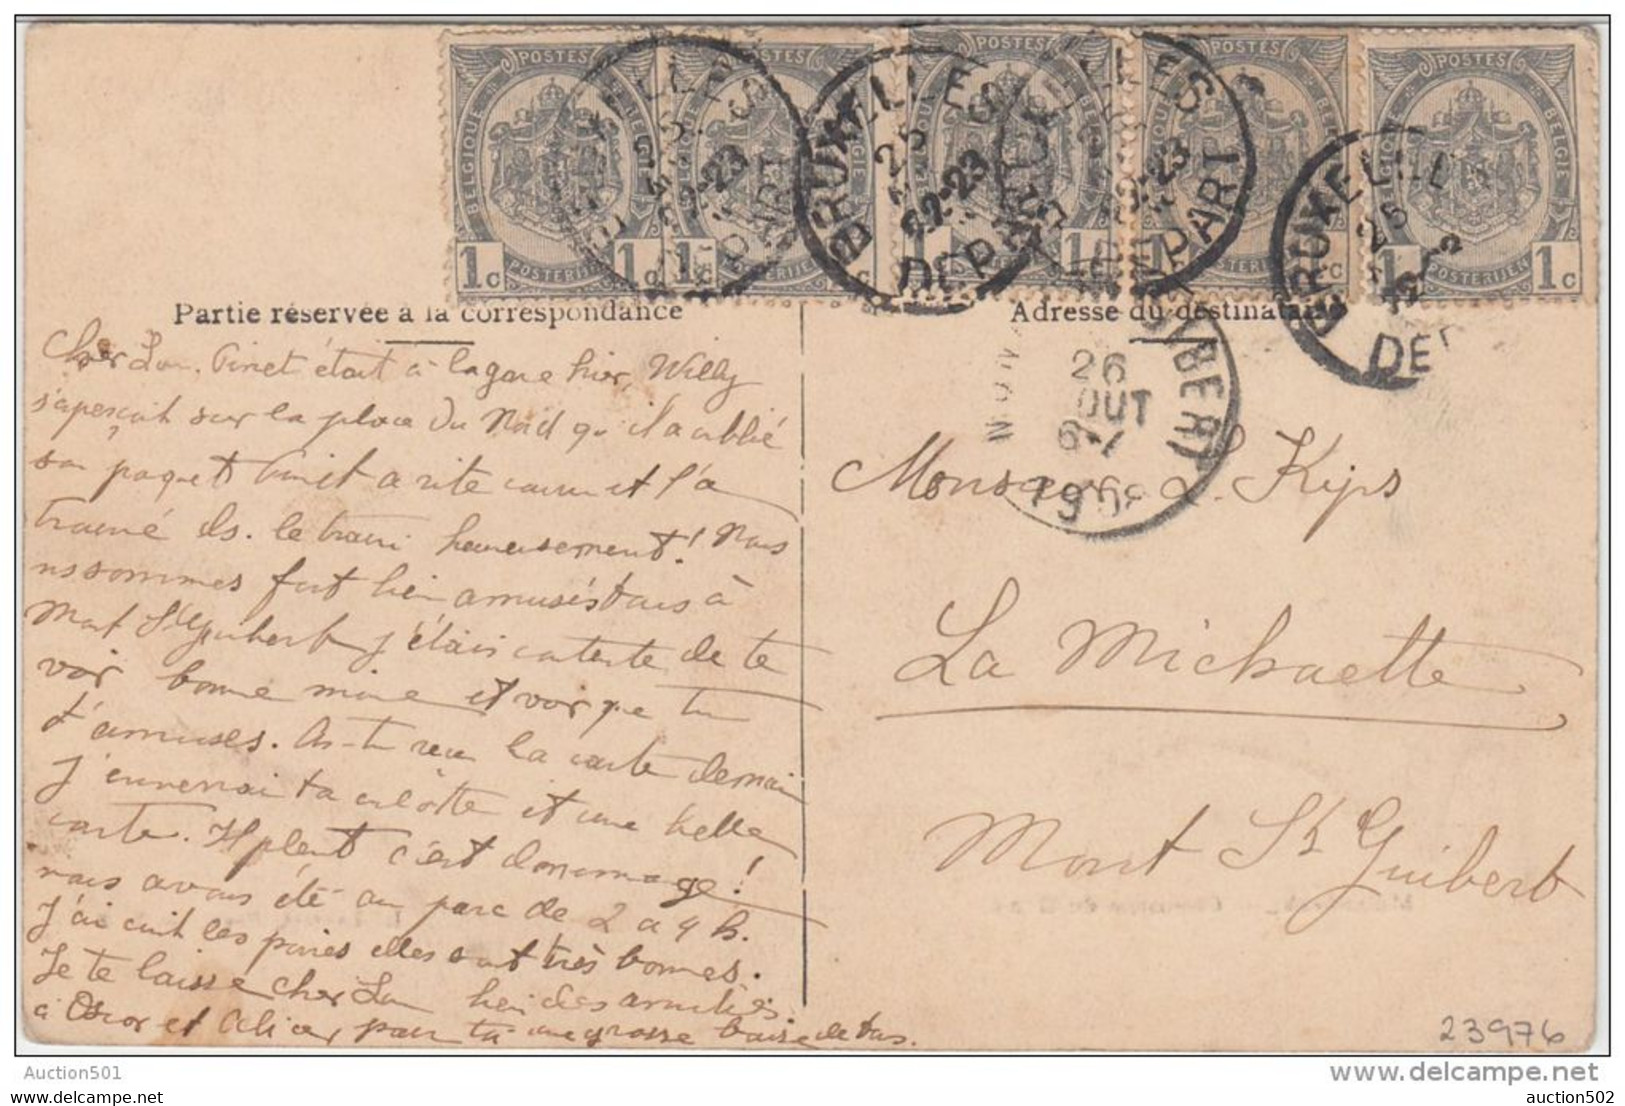 POSTES POSTES POSTES POSTES POSTES
BELGIQUE BELGIE
1c 1c 1c 1c 1c
POSTERIJEN
BRUXELLES
25
22-23
DEPART
Partie réservée à la correspondance
Adresse du destinataire
MONT-ST-GUIBERT
26
AOUT
6-7
1908
Cher Lou. Pinet était à la gare hier, Willy
s'aperçoit sur la place du Nord qu'il a oublié
son paquet Pinet a vite couru et l'a
trouvé ds. le train heureusement! Nous
ns sommes fort bien amusés tous à
Mont St Guibert j'étais contente de te
voir bonne mine et voir que tu
t'amuses. As-tu reçu la carte demain
j'enverrai ta culotte et une belle
carte. Il pleut c'est dommage!
nous avons été au parc de 2 a 4 h.
J'ai cuit les poires elles sont très bonnes.
Je te laisse cher Lou bien des amitiés
à Oscar et pour toi une grosse baise de tous.
Monsieur L. Kips
La Michaette
Mont St Guibert
23976
Auction501
www.delcampe.net
auction502